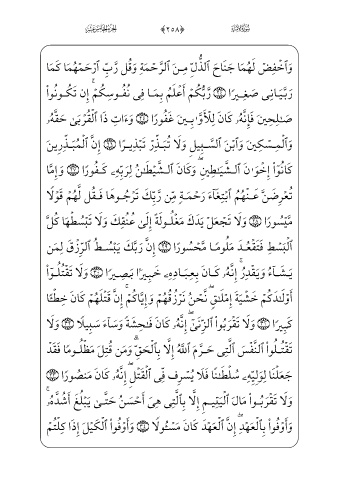 سُورَةُ الإِسْرَاءِ ﴿٢٥٨﴾ الجُزْءُ الخَامِسَ عَشَرَ
وَٱخْفِضْ لَهُمَا جَنَاحَ ٱلذُّلِّ مِنَ ٱلرَّحْمَةِ وَقُل رَّبِّ ٱرْحَمْهُمَا كَمَا
رَبَّيَانِى صَغِيرًا ۝ رَّبُّكُمْ أَعْلَمُ بِمَا فِى نُفُوسِكُمْ ۚ إِن تَكُونُوا۟
صَـٰلِحِينَ فَإِنَّهُۥ كَانَ لِلْأَوَّٰبِينَ غَفُورًا ۝ وَءَاتِ ذَا ٱلْقُرْبَىٰ حَقَّهُۥ
وَٱلْمِسْكِينَ وَٱبْنَ ٱلسَّبِيلِ وَلَا تُبَذِّرْ تَبْذِيرًا ۝ إِنَّ ٱلْمُبَذِّرِينَ
كَانُوٓا۟ إِخْوَٰنَ ٱلشَّيَـٰطِينِ ۖ وَكَانَ ٱلشَّيْطَـٰنُ لِرَبِّهِۦ كَفُورًا ۝ وَإِمَّا
تُعْرِضَنَّ عَنْهُمُ ٱبْتِغَآءَ رَحْمَةٍ مِّن رَّبِّكَ تَرْجُوهَا فَقُل لَّهُمْ قَوْلًا
مَّيْسُورًا ۝ وَلَا تَجْعَلْ يَدَكَ مَغْلُولَةً إِلَىٰ عُنُقِكَ وَلَا تَبْسُطْهَا كُلَّ
ٱلْبَسْطِ فَتَقْعُدَ مَلُومًا مَّحْسُورًا ۝ إِنَّ رَبَّكَ يَبْسُطُ ٱلرِّزْقَ لِمَن
يَشَآءُ وَيَقْدِرُ ۚ إِنَّهُۥ كَانَ بِعِبَادِهِۦ خَبِيرًۢا بَصِيرًا ۝ وَلَا تَقْتُلُوٓا۟
أَوْلَـٰدَكُمْ خَشْيَةَ إِمْلَـٰقٍ ۖ نَّحْنُ نَرْزُقُهُمْ وَإِيَّاكُمْ ۚ إِنَّ قَتْلَهُمْ كَانَ خِطْـًٔا
كَبِيرًا ۝ وَلَا تَقْرَبُوا۟ ٱلزِّنَىٰٓ ۖ إِنَّهُۥ كَانَ فَـٰحِشَةً وَسَآءَ سَبِيلًا ۝ وَلَا
تَقْتُلُوا۟ ٱلنَّفْسَ ٱلَّتِى حَرَّمَ ٱللَّهُ إِلَّا بِٱلْحَقِّ ۗ وَمَن قُتِلَ مَظْلُومًا فَقَدْ
جَعَلْنَا لِوَلِيِّهِۦ سُلْطَـٰنًا فَلَا يُسْرِف فِّى ٱلْقَتْلِ ۖ إِنَّهُۥ كَانَ مَنصُورًا ۝
وَلَا تَقْرَبُوا۟ مَالَ ٱلْيَتِيمِ إِلَّا بِٱلَّتِى هِىَ أَحْسَنُ حَتَّىٰ يَبْلُغَ أَشُدَّهُۥ ۚ
وَأَوْفُوا۟ بِٱلْعَهْدِ ۖ إِنَّ ٱلْعَهْدَ كَانَ مَسْـُٔولًا ۝ وَأَوْفُوا۟ ٱلْكَيْلَ إِذَا كِلْتُمْ